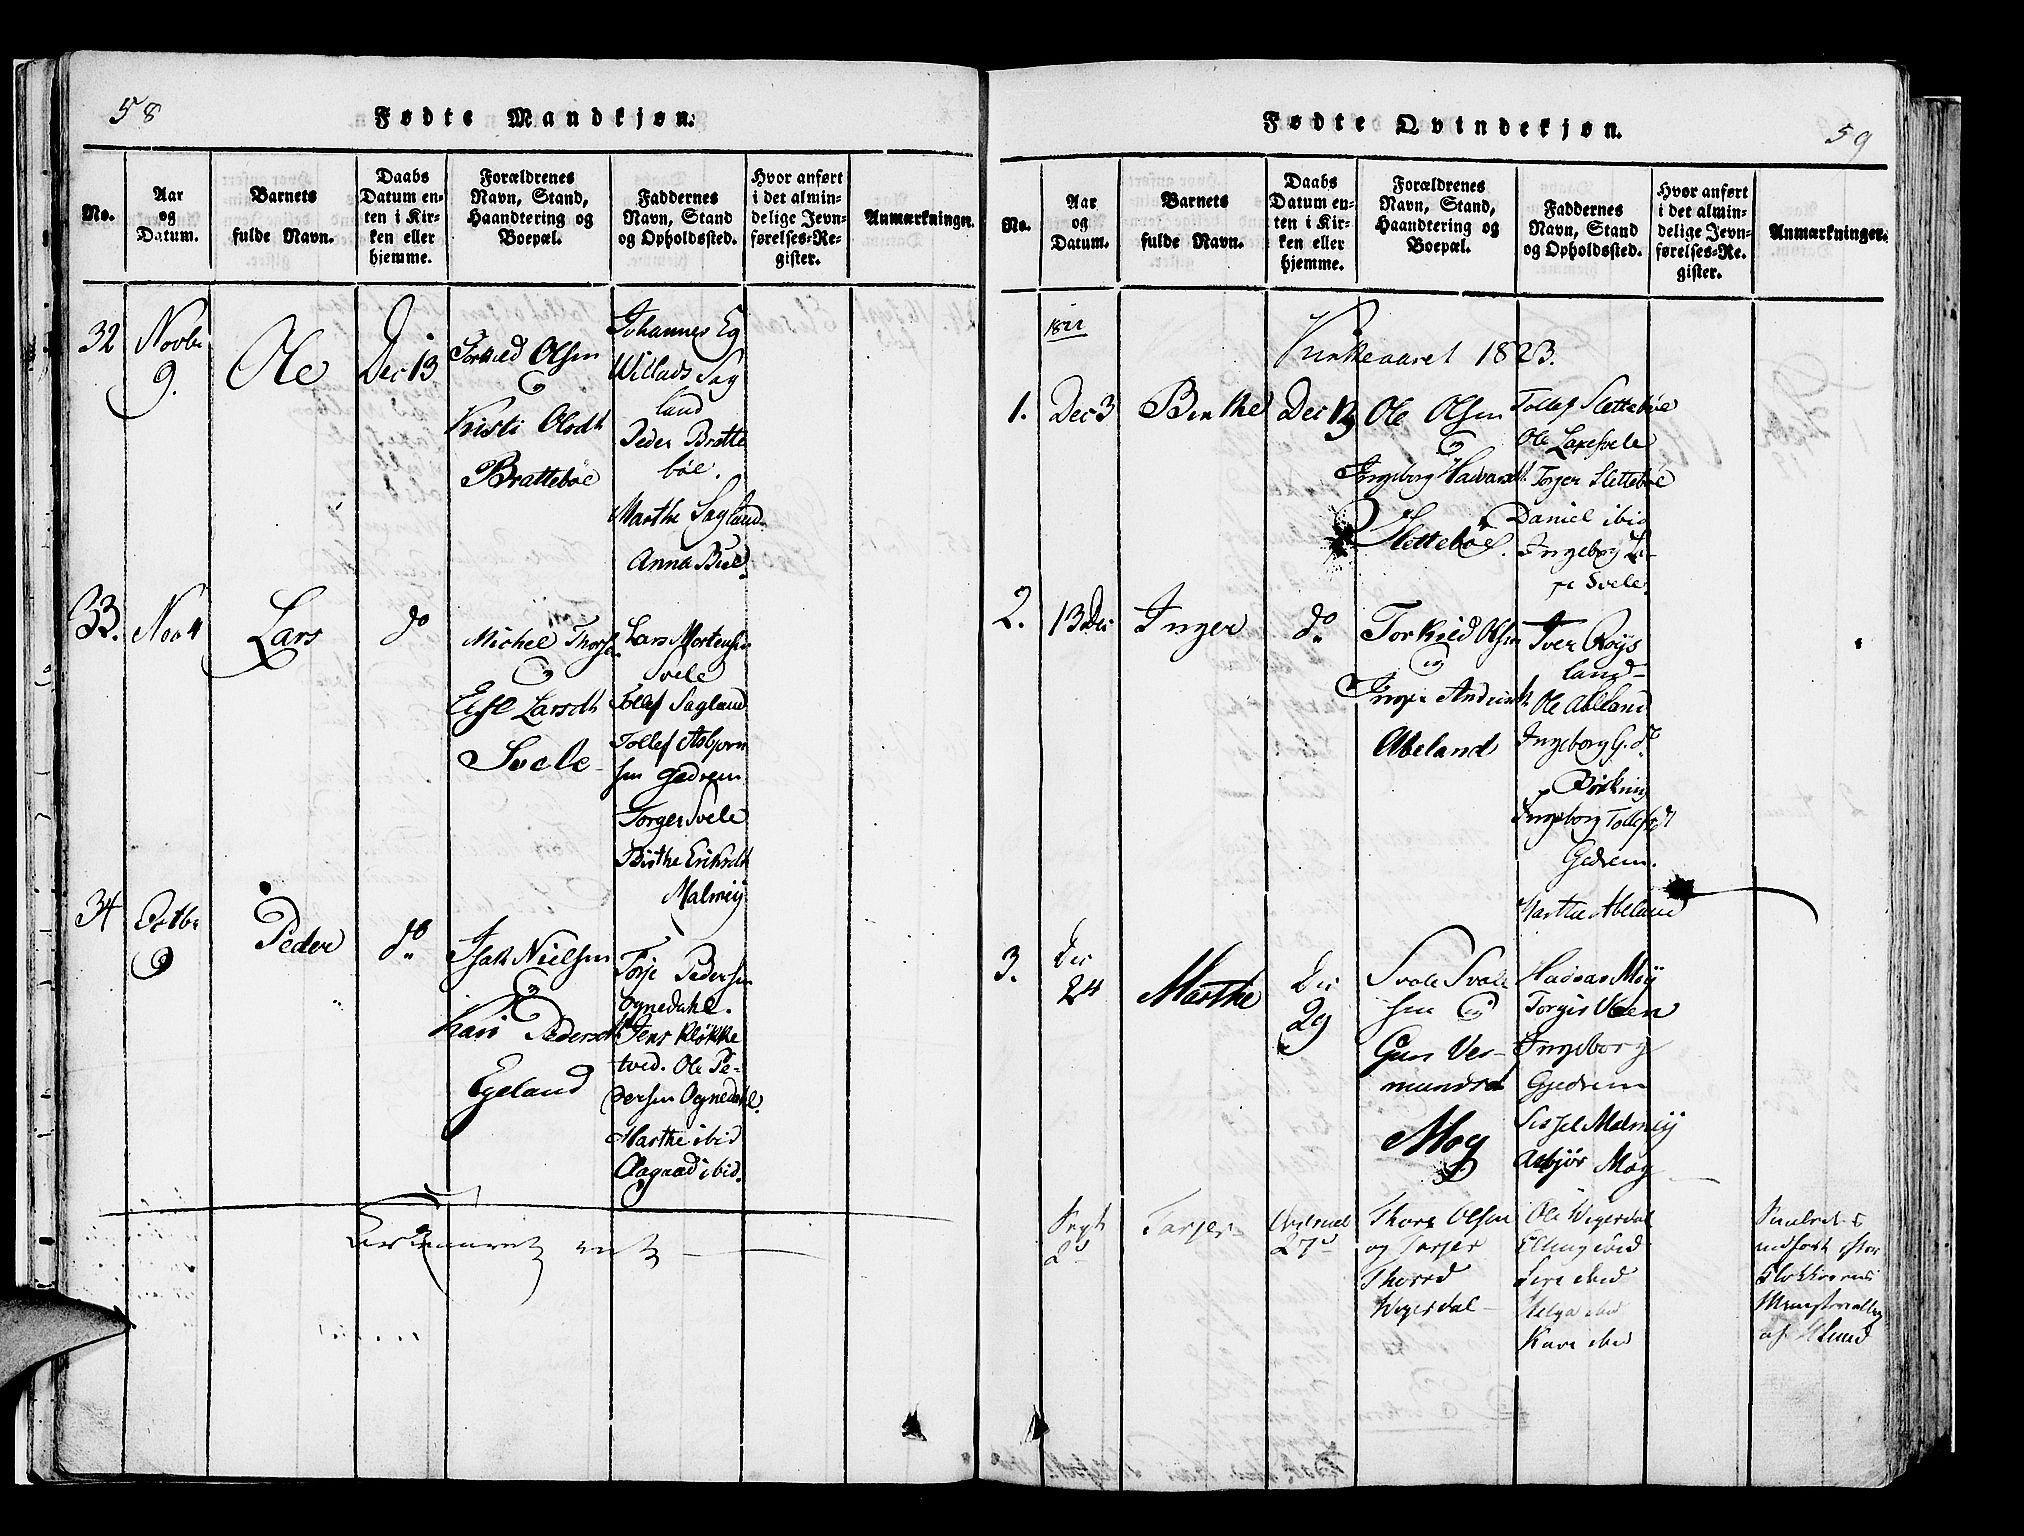 58
Fødte Mandkjøn.
No.
Aar
og
Datum.
Barnets
fulde Navn.
Daabs
Datum en-
ten i Kir-
ken eller
hjemme.
Forældrenes
Navn, Stand,
Haandtering og
Boepæl.
Faddernes
Navn, Stand
og Opholdssted.
Hvor anført
i det almin-
delige Jevn-
førelses-Re-
gister.
Anmærkninger.
32
Novbr
9.
Ole
Dec 13
Torkild Olsen
og
Kristi Olsdt
Brattebøe
Johannes Eg
Willads Sag
land
Peder Bratte
bøe.
Marthe Sagland.
Anna Bue
33.
Nov 4
Lars
do
Michel Thors
og
Else Larsdt
Svele
Lars Mortensen
Svele
Tollef Sagland
Tollef Asbjørn
sen Gedrem
Torger Svele
Birthe Eriksdt
Malmeÿ
34
Octbr
9
Peder
do
Isak Nielsen
og
Kari Pedersdt
Egeland
Torje Pedersen
Ognedahl.
Jens Kløkke
tvedt. Ole Pe-
dersen Ognedahl.
Marthe ibid
Aagaad ibid.
59
Fødte Qvindekjøn.
No.
Aar
og
Datum.
Barnets
fulde Navn.
Daabs
Datum en-
ten i Kir-
ken eller
hjemme.
Forældrenes
Navn, Stand,
Haandtering og
Boepæl.
Faddernes
Navn, Stand
og Opholdssted.
Hvor anført
i det almin-
delige Jevn-
førelses-Re-
gister.
Anmærkninger.
1822
Kirkeaaret 1823.
1.
Dec 3
Berthe
Dec 13
Ole Olsen
og
Ingeborg Havardt
Slettebøe.
Tollef Slettebøe
Ole Laxesvele
Torger Slettebøe
Daniel ibid
Ingeborg La-
xe Svele
2.
13 Dec
Inger
do
Torkild Olsen
og
Inger Andersdt
Abeland
Iver Røys
land
Ole Abeland
Ingeborg G. dt
Birking
Ingeborg Tollefsdt
Gedrem.
Marthe Abeland
3.
Dec
24
Marthe
Dec
29
Svale Svale
sen og
Guri Ves-
mundsd
Moy
Hadvar Moÿ
Torgis Veen
Ingeborg
Gjedrem
Sissel Malmeÿ
Asbjør Moy
Sept
2d
Torjer
27d
Thore Olsen
og Torjer
Thorsd
Wegerdal
Ole Wegerdal
Elling ibid
Siri ibid
Helga ibid
Kari ibid
indført efter
Klokkerens
af Lund